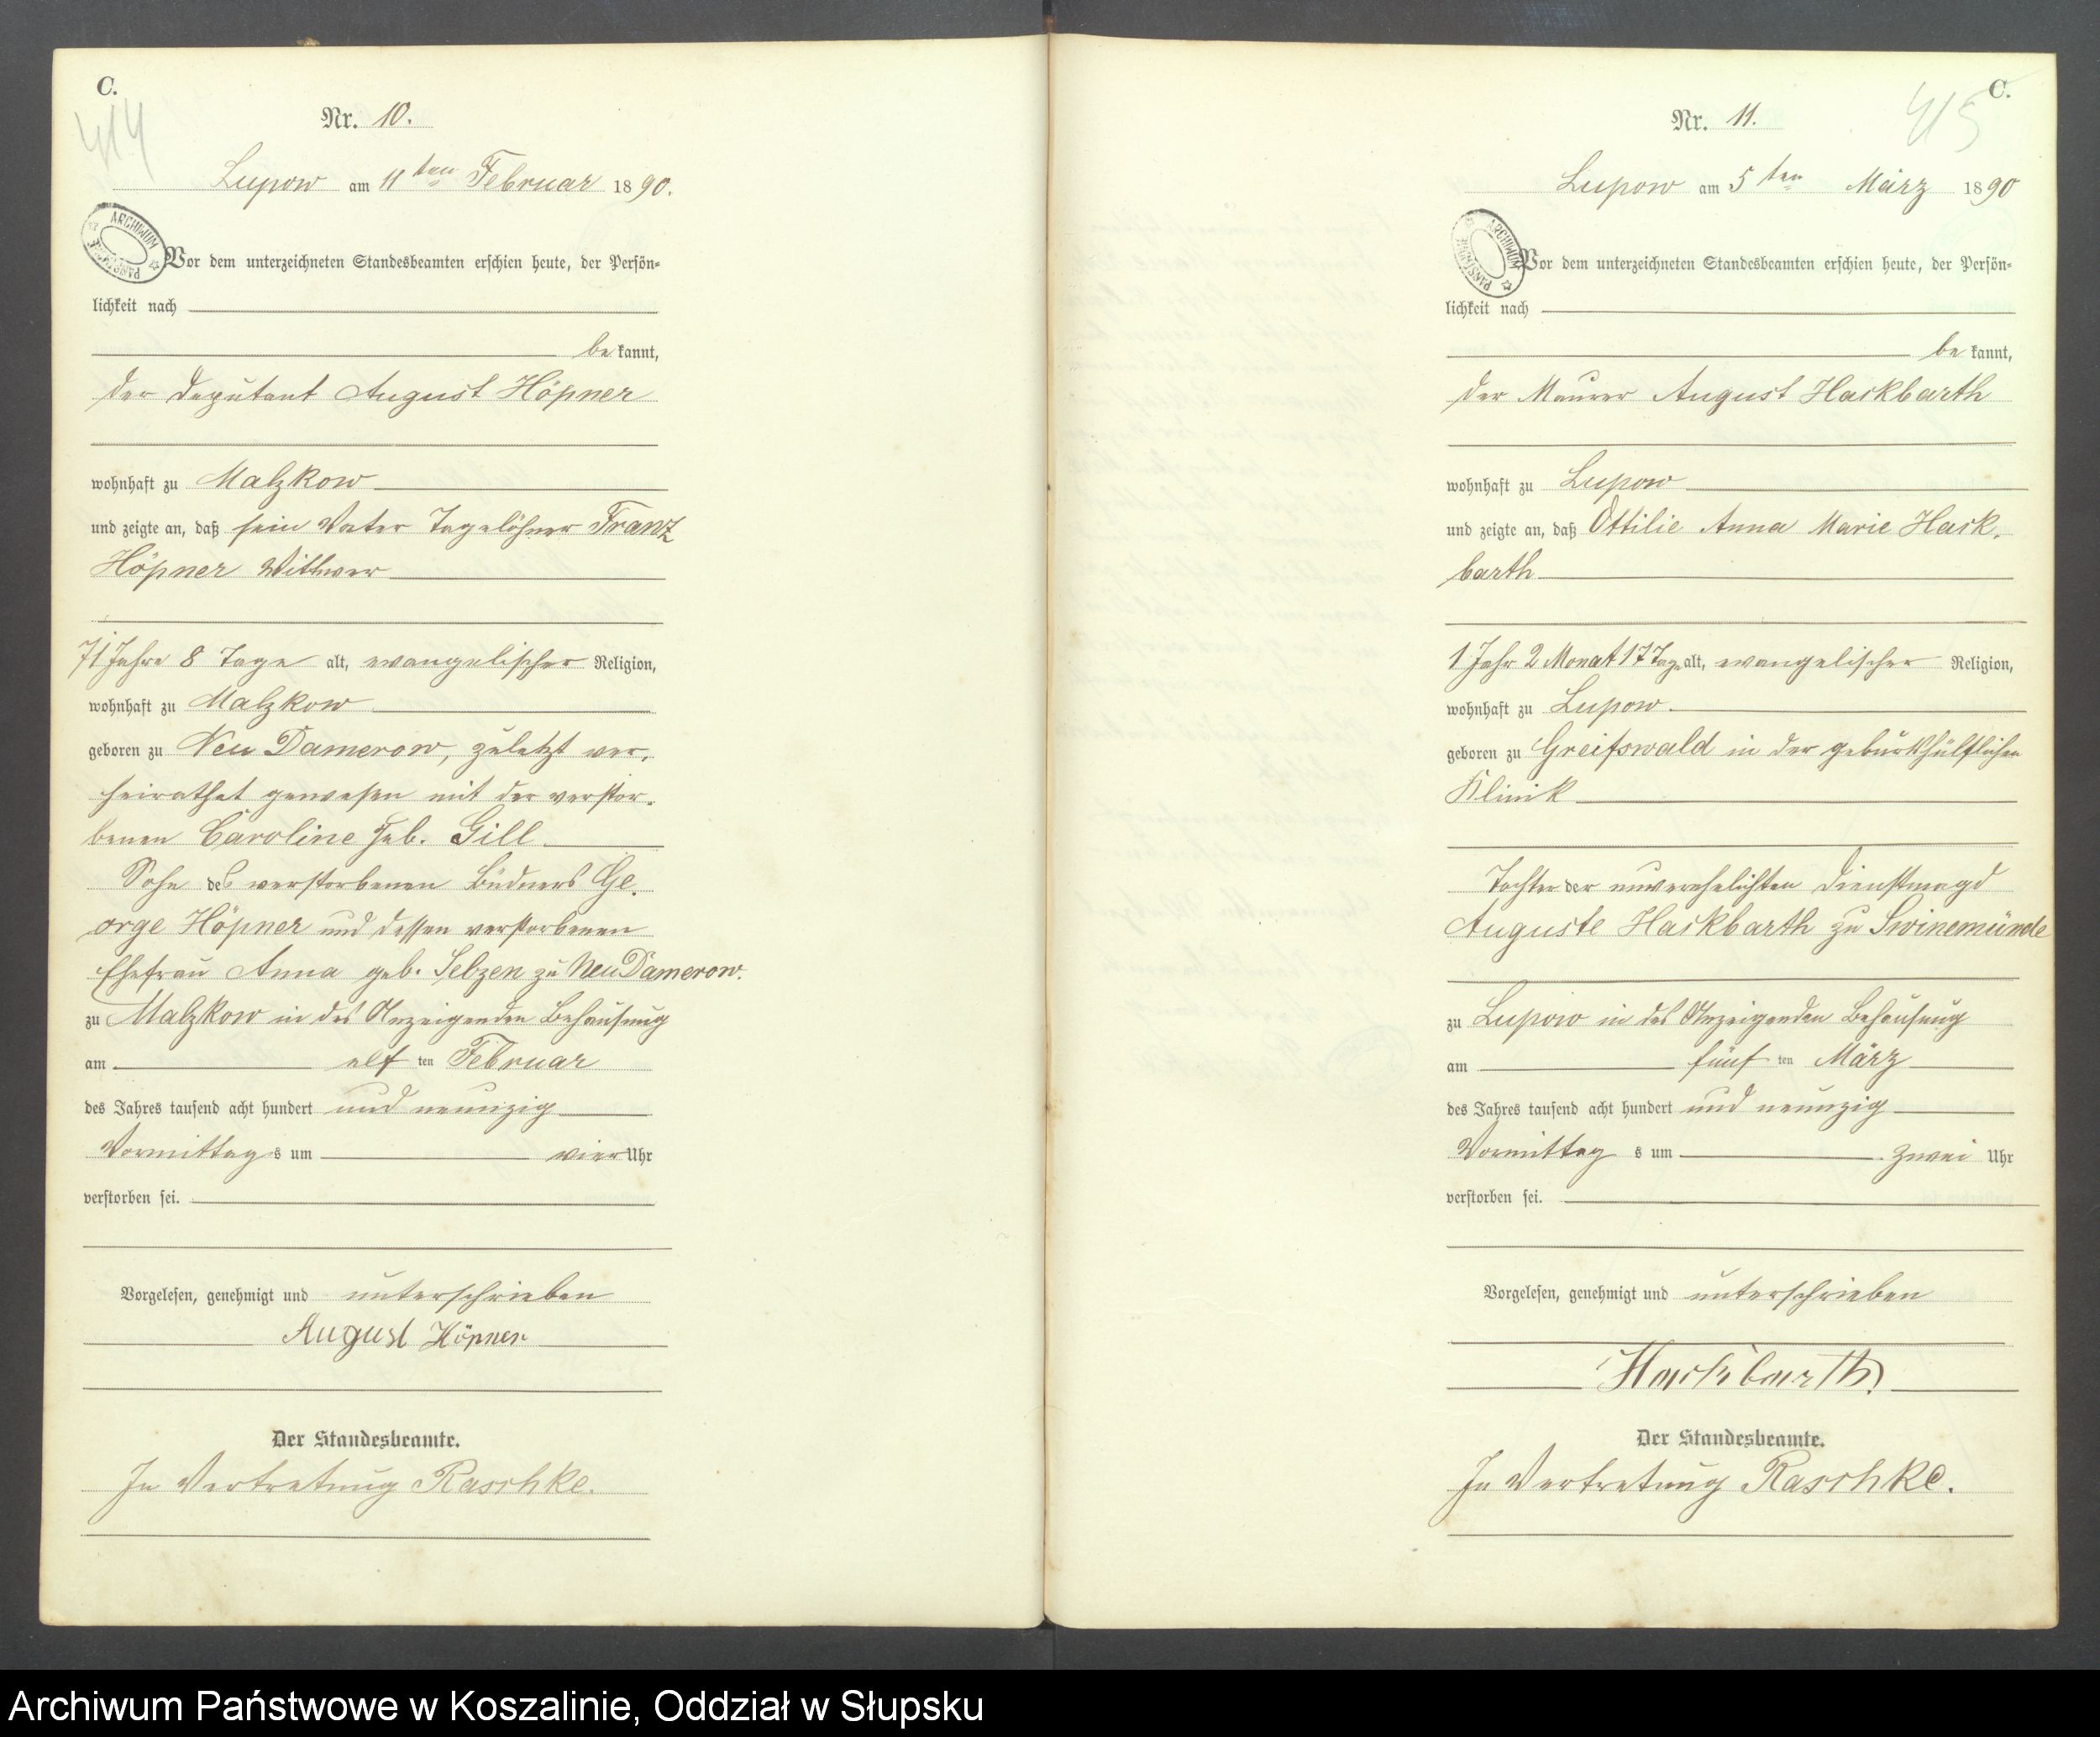 C.
414
Nr. 10.
Lupow am 11 ten Februar 1890.
ARCHIWUM PAŃSTWOWE
Vor dem unterzeichneten Standesbeamten erschien heute, der Persön-
lichkeit nach
be kannt,
der Deputant August Höpner
wohnhaft zu Malzkow
und zeigte an, daß sein Vater Tagelöhner Franz
Höpner Wittwer
71 Jahre 8 Tage alt, evangelischer Religion,
wohnhaft zu Malzkow
geboren zu Neu Damerow, zuletzt ver-
heirathet gewesen mit der verstor-
benen Caroline geb. Gill
Sohn des verstorbenen Büdners Ge-
orge Höpner und dessen verstorbenen
Ehefrau Anna geb. Selzen zu Neu Damerow.
zu Malzkow in des Anzeigenden Behausung
am elf ten Februar
des Jahres tausend acht hundert und neunzig
Vormittag s um vier Uhr
verstorben sei.
Vorgelesen, genehmigt und unterschrieben
August Höpner
Der Standesbeamte.
In Vertretung Raschke.
C.
415
Nr. 11.
Lupow am 5 ten März 1890
ARCHIWUM PAŃSTWOWE
Vor dem unterzeichneten Standesbeamten erschien heute, der Persön-
lichkeit nach
be kannt,
der Maurer August Hackbarth
wohnhaft zu Lupow
und zeigte an, daß Ottilie Anna Marie Hack-
barth
1 Jahr 2 Monat 17 Tage alt, evangelischer Religion,
wohnhaft zu Lupow.
geboren zu Greifswald in der geburtshülflichen
Klinik
Tochter der unverehelichten Dienstmagd
Auguste Hackbarth zu Swinemünde
zu Lupow in des Anzeigenden Behausung
am fünf ten März
des Jahres tausend acht hundert und neunzig
Vormittag s um zwei Uhr
verstorben sei.
Vorgelesen, genehmigt und unterschrieben
Hackbarth
Der Standesbeamte.
In Vertretung Raschke.
Archiwum Państwowe w Koszalinie, Oddział w Słupsku